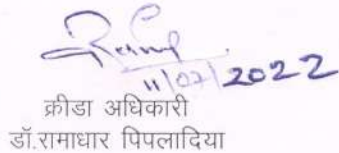 11/07/2022
क्रीडा अधिकारी
डॉ.रामाधार पिपलादिया